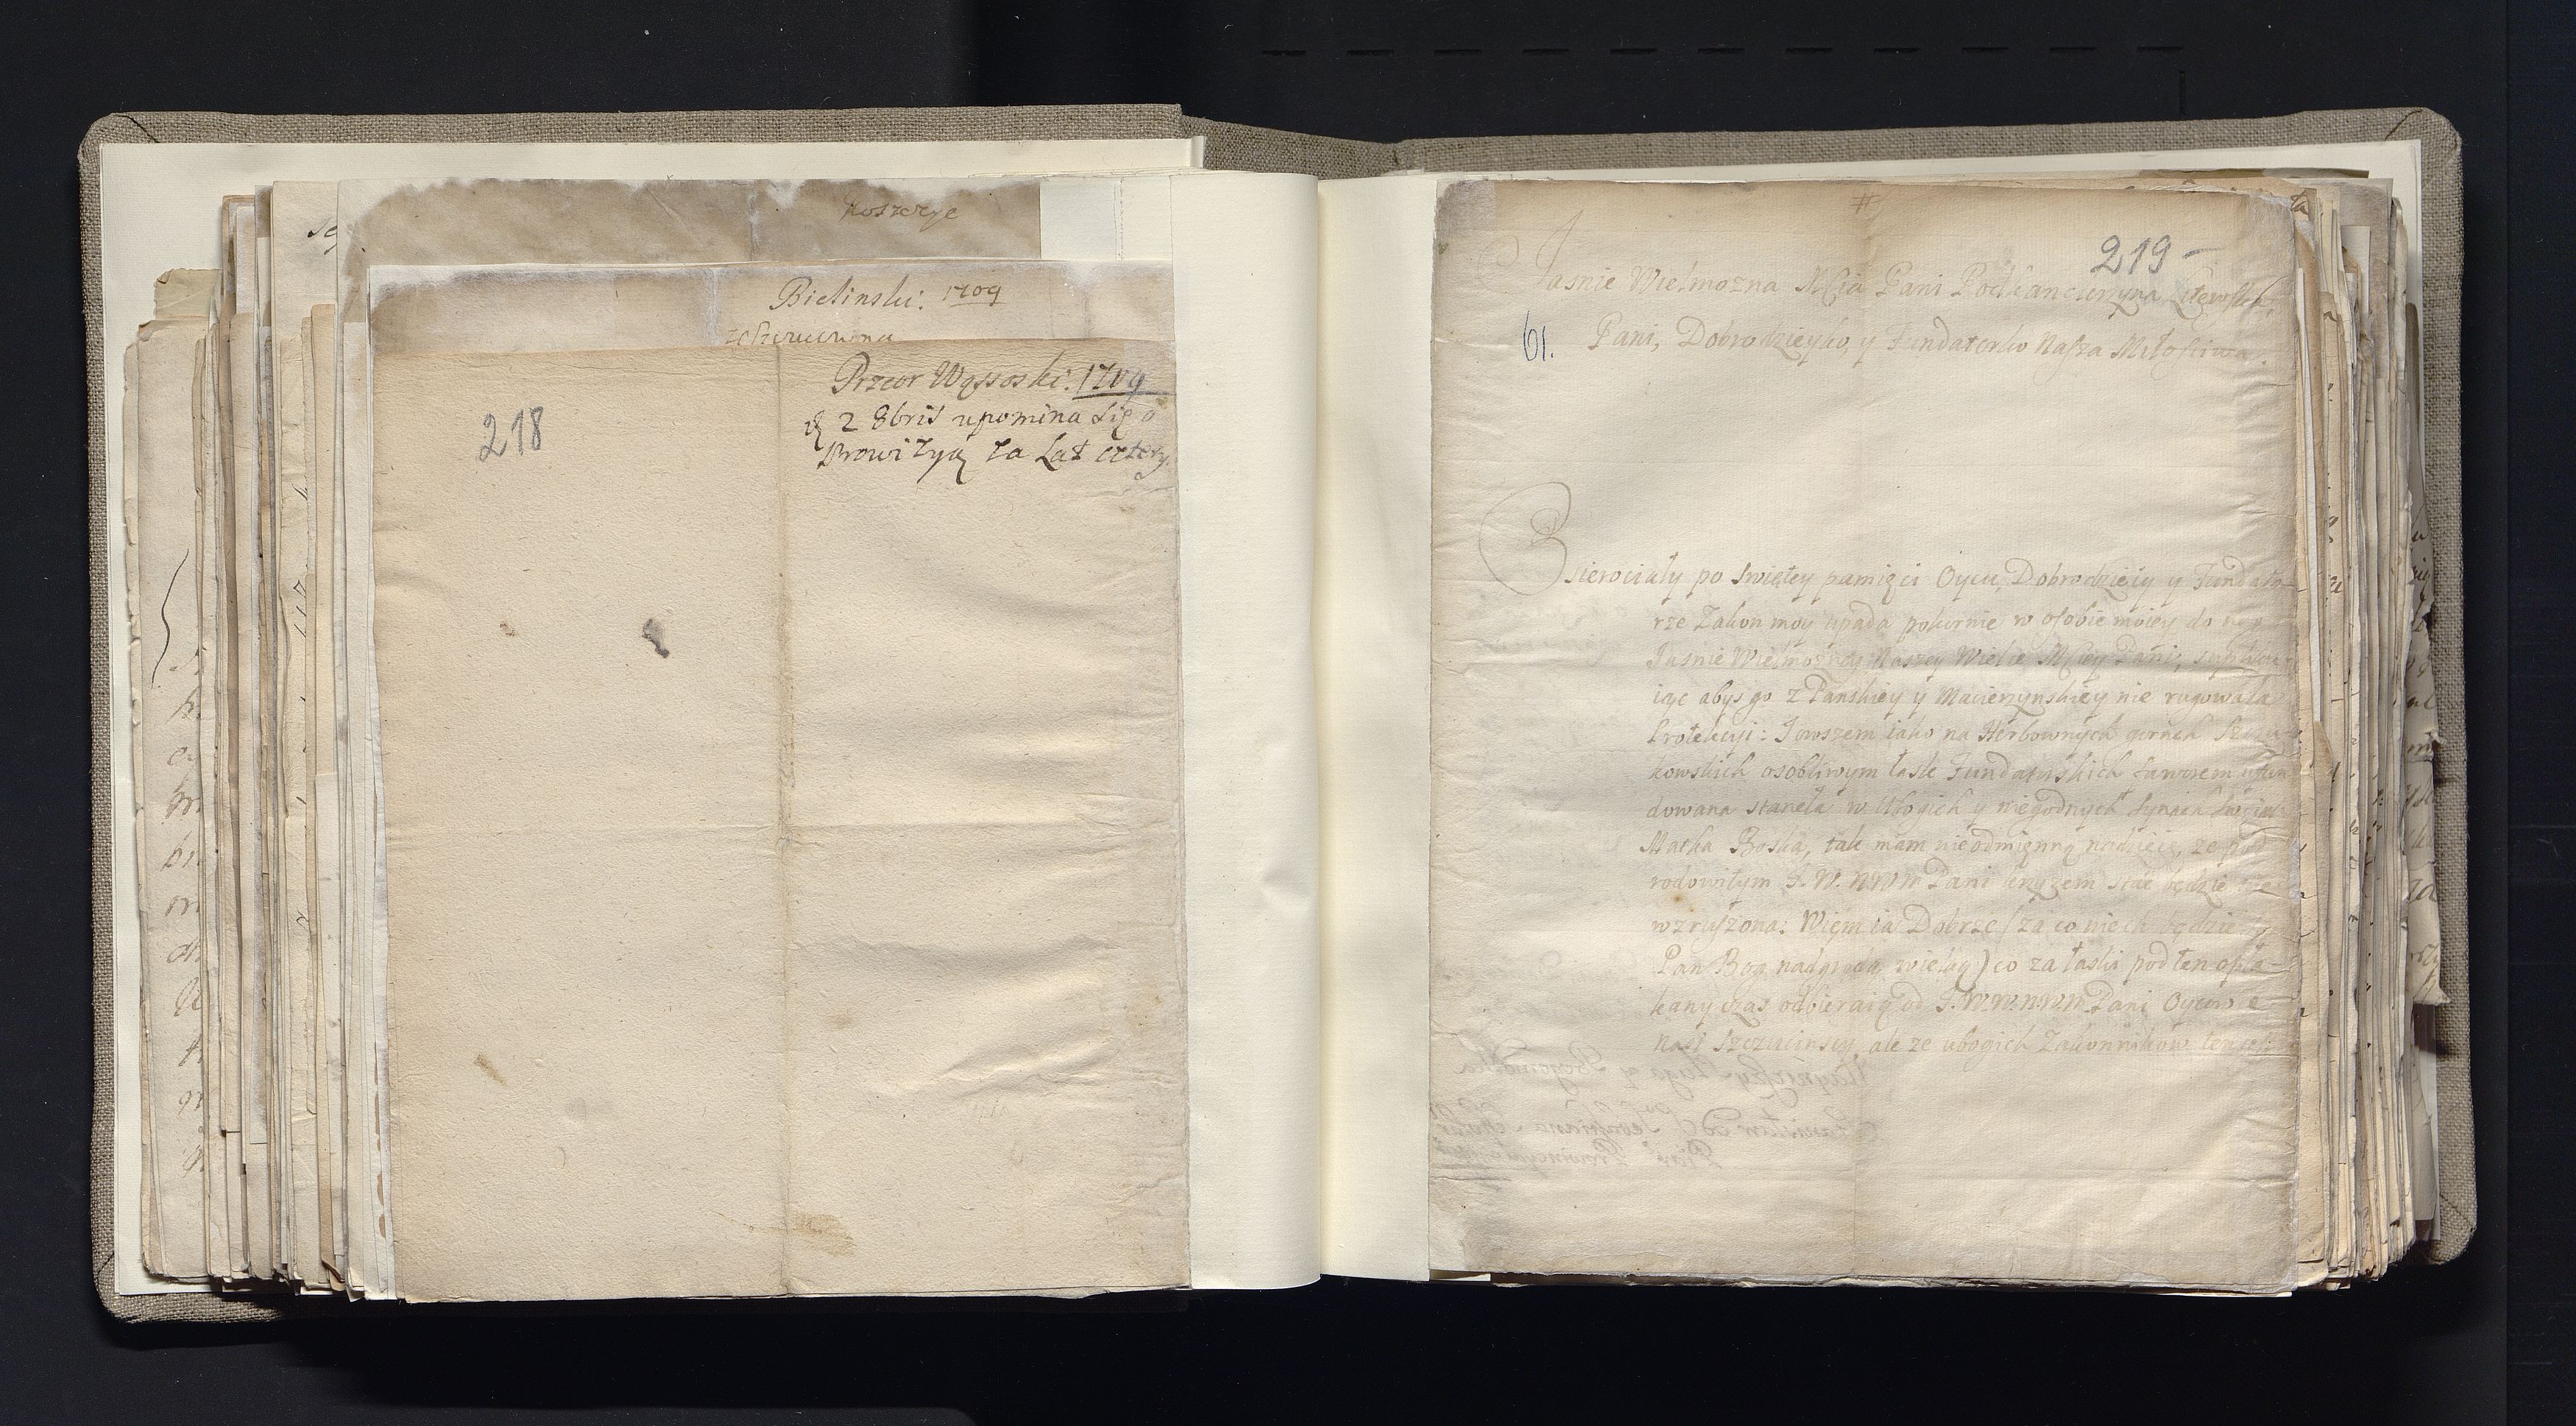 koszerye
Bielinski: 1709
Przeor Wąssoski: 1709
d 2 8bris upomina się o
prowizyą za Lat cztery.
218
219 -
Jasnie Wielmozna Mcia Pani Podkanclerzyna Litewska,
61.
Pani, Dobrodzieyko, y Fundatorko Nasza Miłościwa.
Osierociały po swiętey pamięci Oycu, Dobrodzieiu y Fundato-
rze Zakon moy upada pokornie w osobie moiey do nog
Jasnie Wielmozney Naszey Wielce Mciey Pani, suppliku-
iąc abys go z Panskiey y Macierzynskiey nie rugowała
Protekcyi: Jowszem iako na Herbownych gorach Szczu-
kowskich osobliwym łask Fundatorskich faworem ufun
dowana staneła w Ubogich y niegodnych synach swoich
Matka Boska, tak mam nieodmięnną nadzieię, ze pod
rodowitym J. W. NWM Pani
wzruszona: Wiem ia Dobrze (za co niech będzie
Pan Bog nadgrodą wielką) co za łaski pod ten opła-
kany czas odbieraią od J. W. W. N. W. M Pani Oycowie
Nasi Szczucinscy, ale ze ubogich Zakonnikow